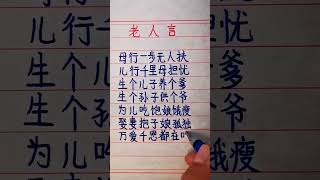 老人言
母行一步无人扶
儿行千里母担忧
生个儿子养个爹
生个孙子供个爷
为儿吃饱娘饿瘦
娶妻抱子娘孤独
万爱千恩都在